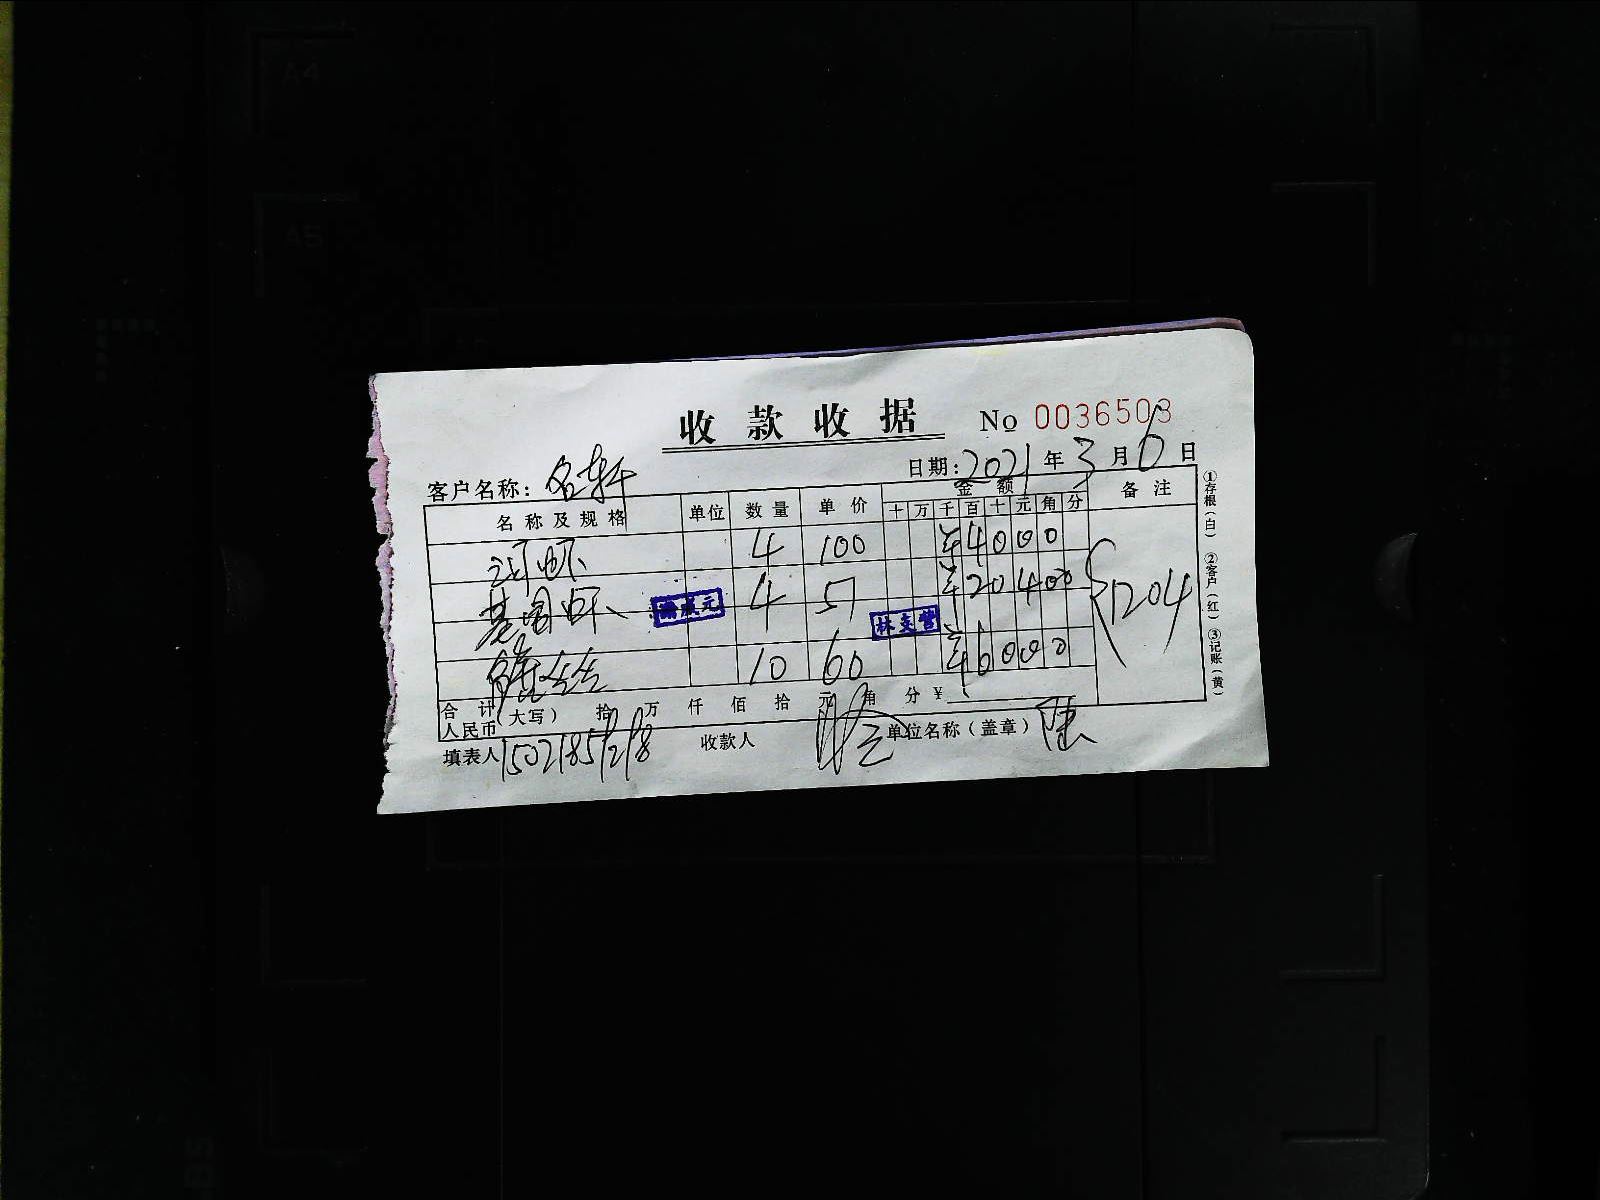 A4
A5
收款收据 No 0036503
日期：2021年3月6日
客户名称：名轩
名称及规格 单位 数量 单价 金额 备注
十 万 千 百 十 元 角 分
河虾 4 100 ¥40000
基围虾 4 51 ¥20400
10 60 ¥60000
1204
林支营
合计人民币（大写） 拾 万 仟 佰 拾 元 角 分 ¥
填表人 15021851218 收款人 单位名称（盖章） 陆
①存根（白） ②客户（红） ③记账（黄）
B5